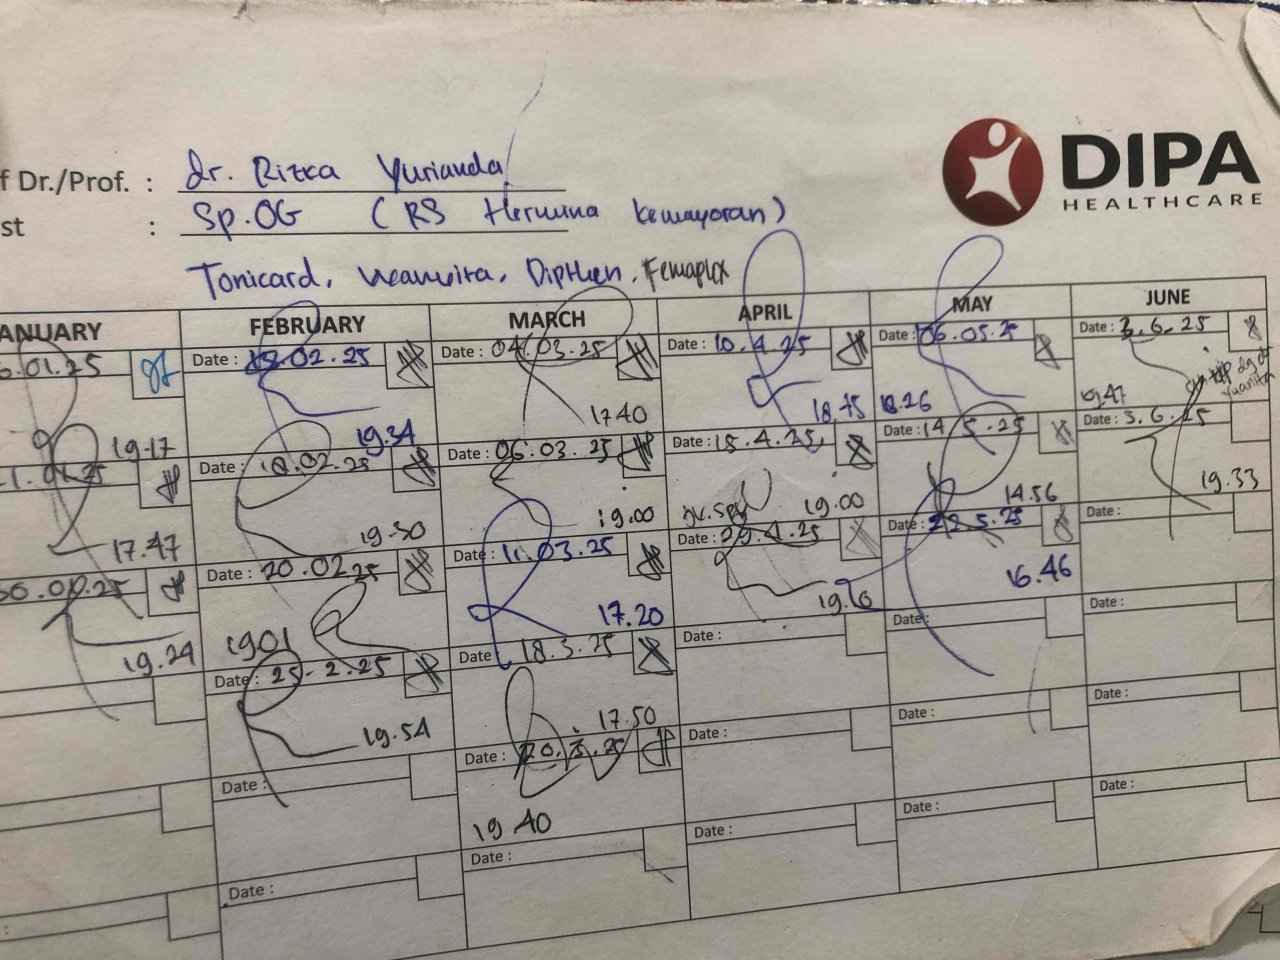 f Dr./Prof. : dr. Rizka Yurianda
st : Sp.OG (RS Hermina Kemayoran)
DIPA
HEALTHCARE
Tonicard, Neanvita, Dipthen, Femaplex
ANUARY FEBRUARY MARCH APRIL MAY JUNE
.01.25 Date : .02.25 Date : 04.03.25 Date : 10.4.25 Date : 06.05.25 Date : 3.6.25
19.17 19.34 17.40 18.45 18.26 19.47
Date : 18.02.25 Date : 06.03.25 Date : 15.4.25 Date : 14.5.25 Date : 3.6.25
17.47 19.30 19.00 19.00 14.56 19.33
Date : 20.02.25 Date : 11.03.25 Date : 29.4.25 Date : 22.5.25 Date :
19.24 1901 17.20 19.16 16.46
Date : 25-2.25 Date : 18.3.25 Date : Date : Date :
19.54 17.50
Date : Date : 20.3.25 Date : Date : Date :
19.40
: Date : Date : Date : Date : Date :